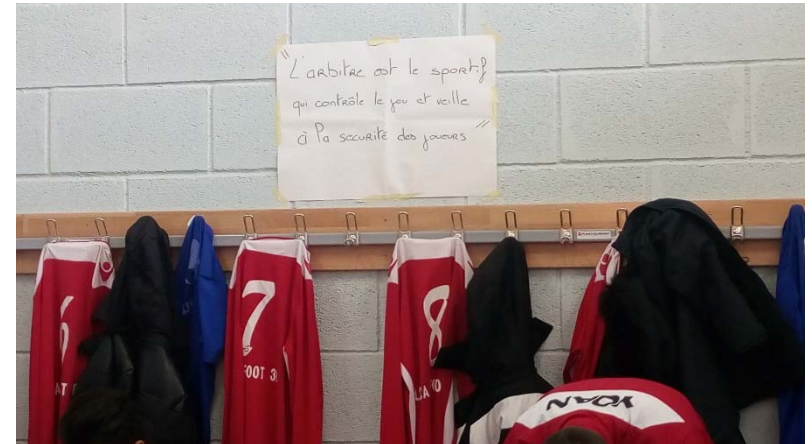 "L'arbitre est le sportif
qui contrôle le jeu et veille
à la sécurité des joueurs"
6
7
8
FOOT 3
YOAN